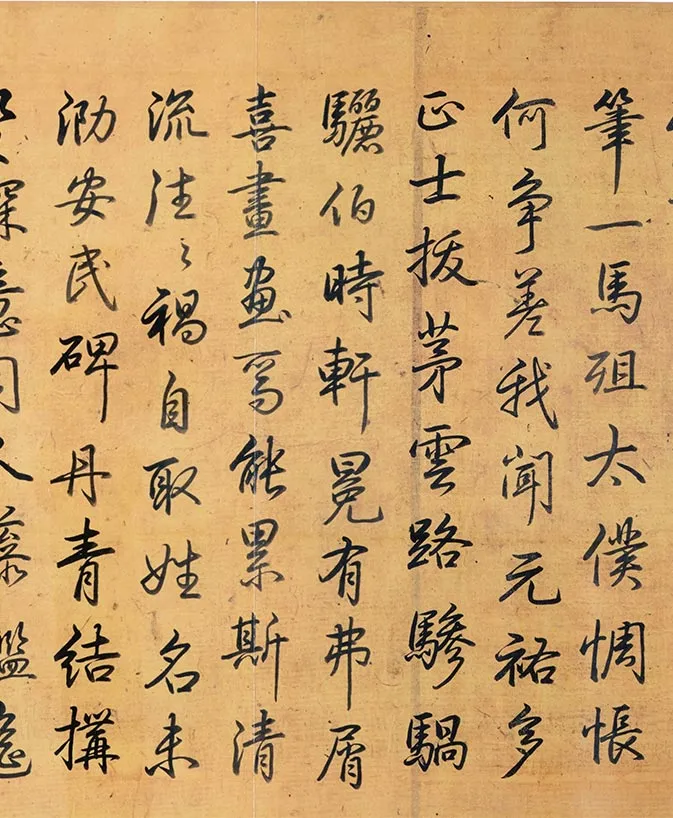 筆一馬殂太僕惆悵
何爭差我聞元祐多
正士拔茅雲路驂騧
驪伯時軒冕有弗屑
喜畫畫焉能累斯清
流往〻禍自取姓名未
泐安民碑丹青結搆